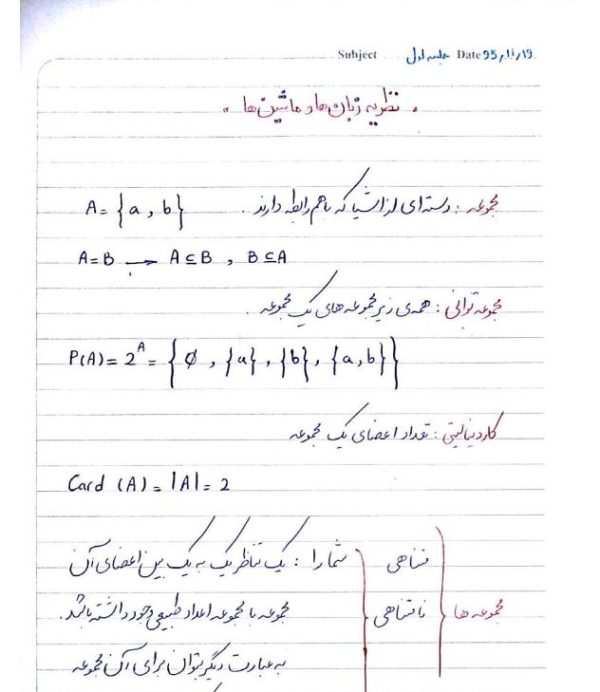 Subject جلسه اول Date 95/11/19
نظریه زبان‌ها و ماشین‌ها
مجموعه : دسته‌ای از اشیا که باهم رابطه دارند . A = {a , b}
A = B → A ⊆ B , B ⊆ A
مجموعه توانی : همه‌ی زیر مجموعه‌های یک مجموعه .
P(A) = 2^A = {∅ , {a} , {b} , {a,b}}
کاردینالیتی : تعداد اعضای یک مجموعه
Card (A) = |A| = 2
متناهی شمارا : یک تناظر یک به یک بین اعضای آن
مجموعه ها نامتناهی مجموعه با مجموعه اعداد طبیعی وجود داشته باشد.
به عبارت دیگر بتوان برای آن مجموعه